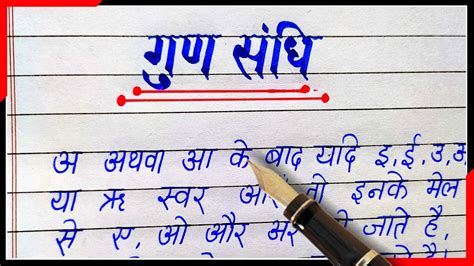 गुण संधि
अ अथवा आ के बाद यदि इ,ई,उ,ऊ
या ऋ स्वर तो इनके मेल
से ए, ओ और अर जाते है,